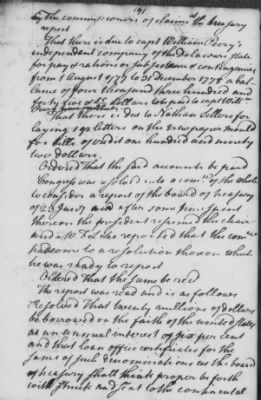 191
by the commissioners of claims at the treasury
report
That there is due to capt William Pery's
independent company of the Delaware state
for pay & rations or subsistence & contingencies
from 1 August 1777 to 31 december 1778 a bal
lance of four thousand three hundred and
forty five & dollars to be paid to capt Will m
Pery
That there is due to Nathan Sellers for
laying 192 letters on the Newspaper mould
for bills of credit one hundred and ninety
two dollars.
Ordered That the said accounts be paid
Congress was resolved into a com of the whole
to consider a report of the board of treasury
of and after some time spent
thereon the president resumed the chair
and M F L Lee reported that the com
had come to a resolution thereon which
he was ready to report
Ordered That the same be rec d
The report was read and is as follows
Resolved That twenty millions of dollars
be borrowed on the faith of the united States
at an annual interest of six per cent
and that loan office certificates for the
same of such denominations as the board
of treasury shall think proper be forth
with struck and sent to the continental